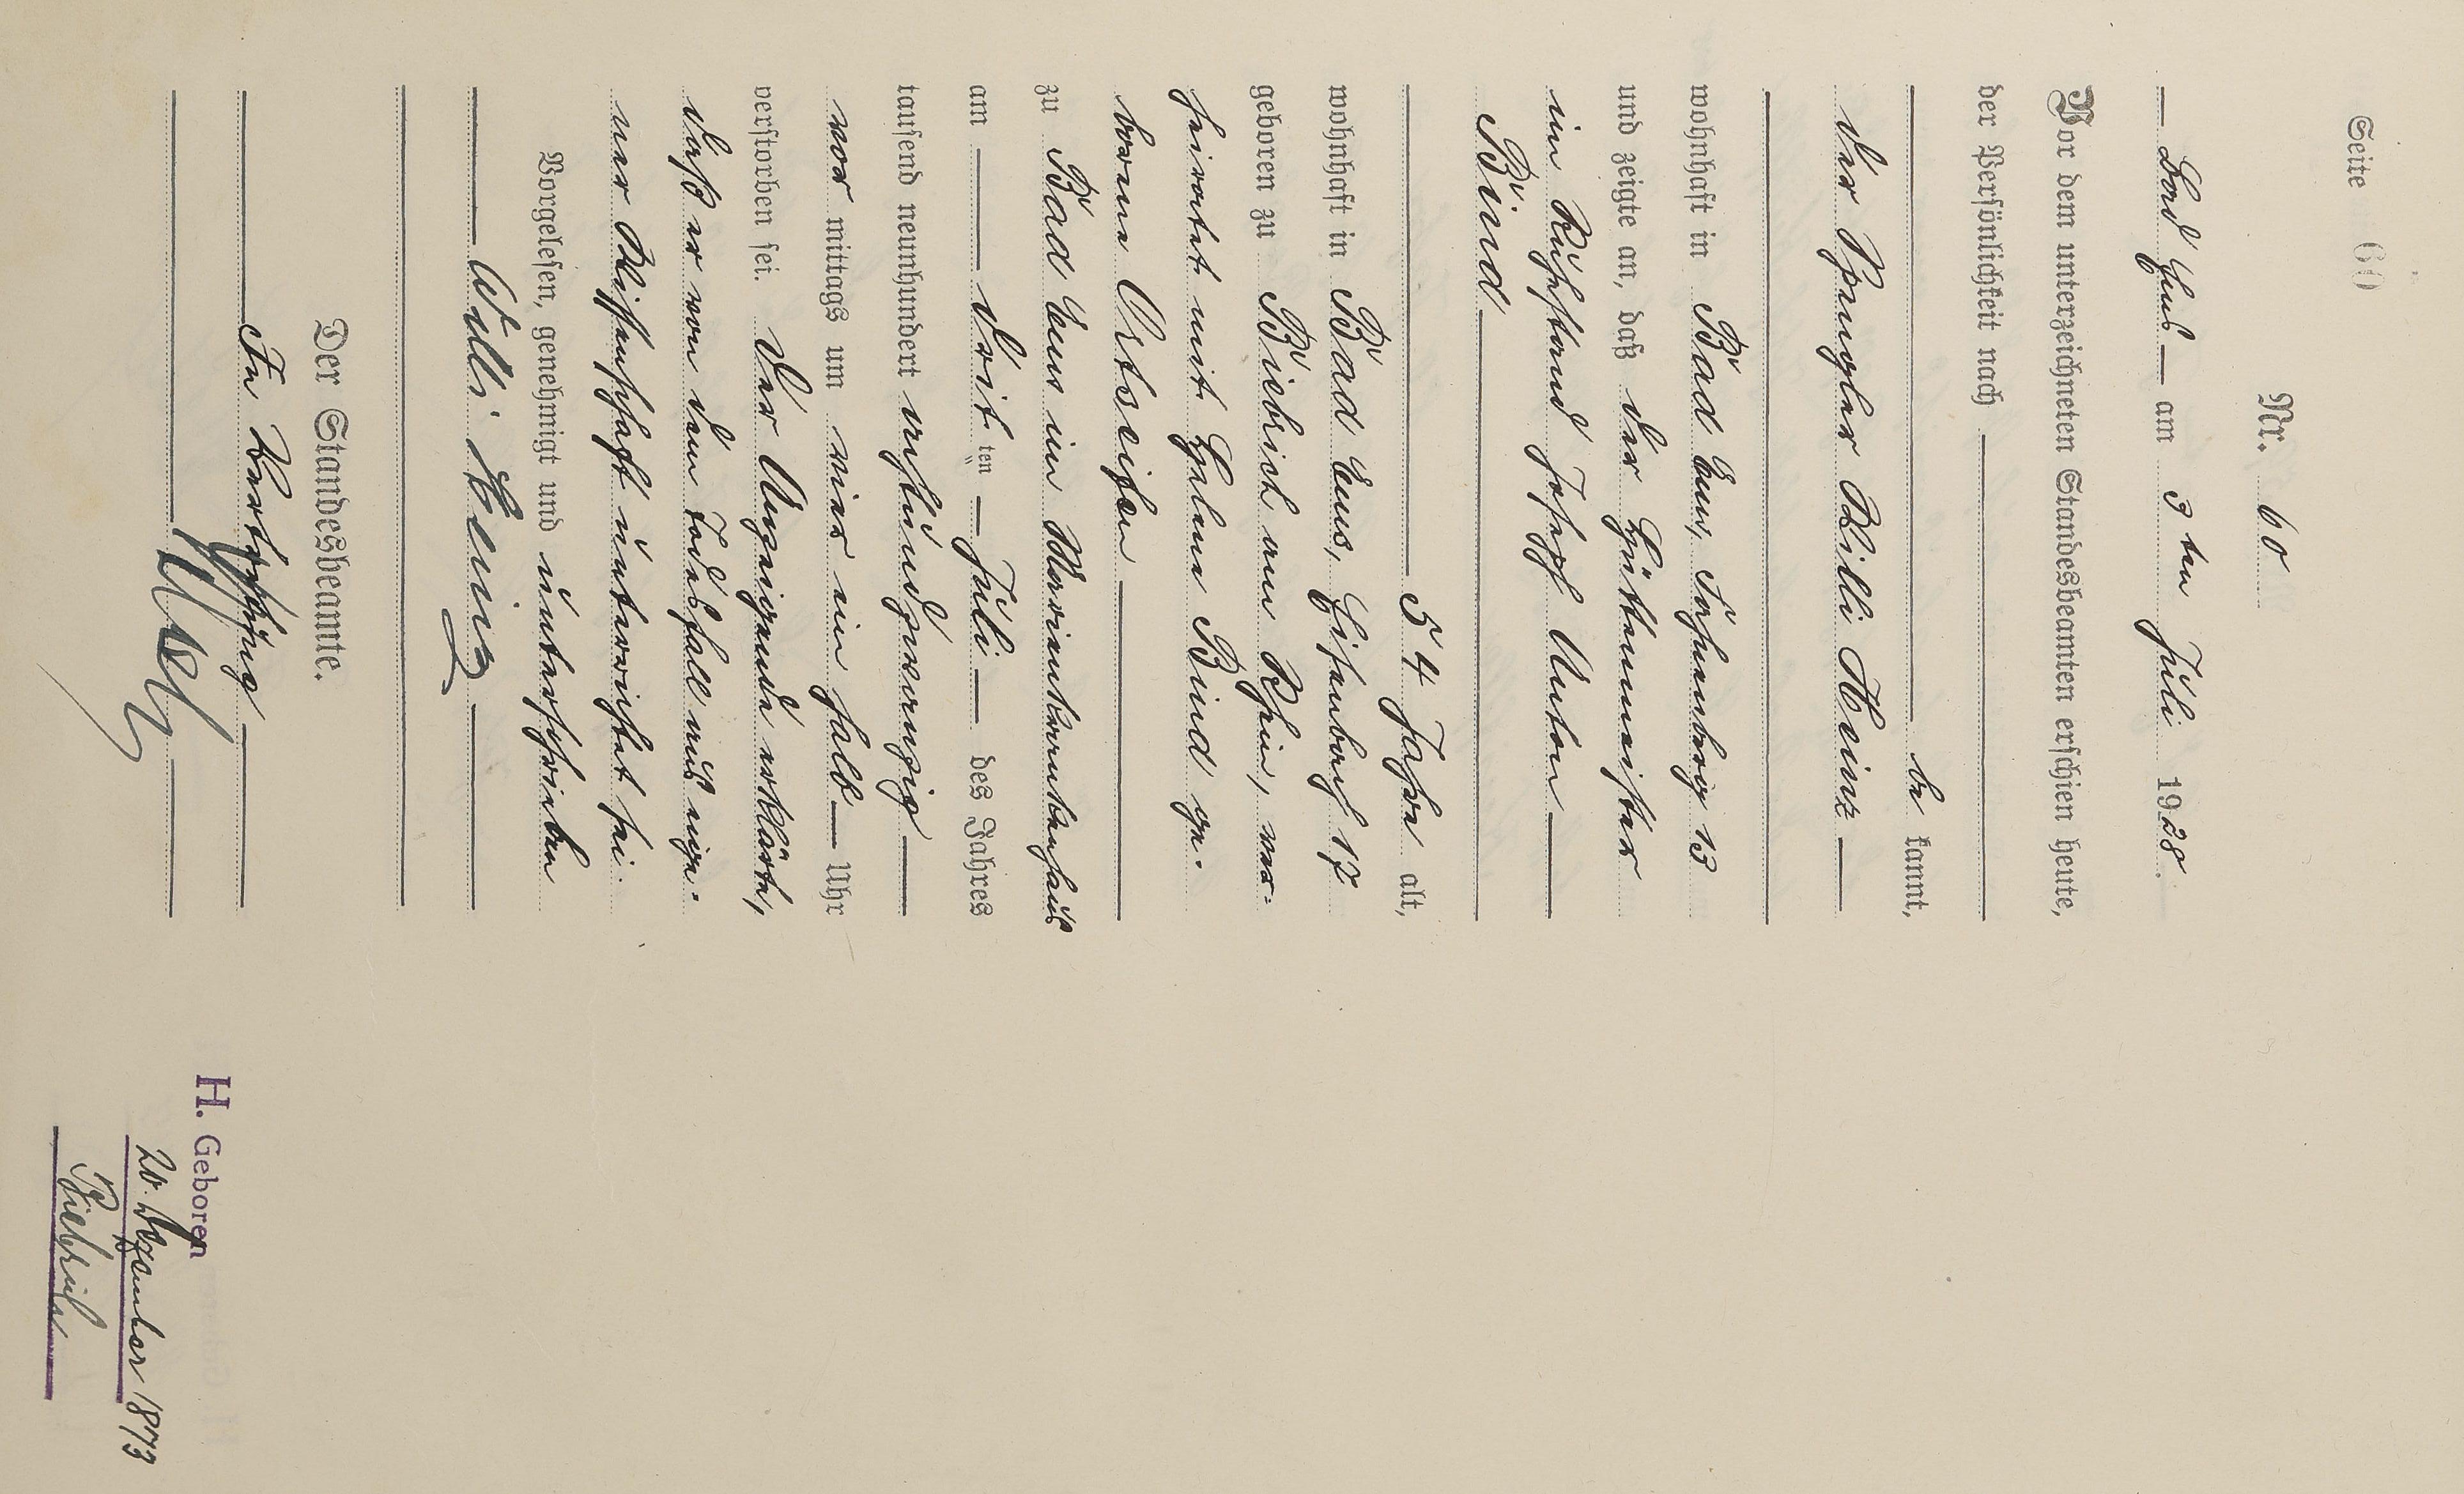 Seite 60
Nr. 60
Bad Ems am 3ten Juli 1928.
Vor dem unterzeichneten Standesbeamten erschien heute,
der Persönlichkeit nach
be kannt,
der Spengler Willi Heinz
wohnhaft in Bad Ems, 13
und zeigte an, daß der Hüttenmeister
im Ruhestand Josef Anton
Bind
54 Jahre alt,
wohnhaft in Bad Ems, Eisenbach 17
geboren zu Biebrich am Rhein, ver-
heiratet mit Helene Bind ge-
borene Ortseifen
zu Bad Ems im Marienkrankenhaus
am dritten Juli des Jahres
tausend neunhundert achtundzwanzig
vor mittags um vier ein halb Uhr
verstorben sei. Der Anzeigende erklärte,
daß er von dem Todesfall aus eige-
ner Wissenschaft unterrichtet sei.
Vorgelesen, genehmigt und unterschrieben
Willi Heinz
Der Standesbeamte.
In Vertretung
H. Geboren
20. Dezember 1873
Biebrich